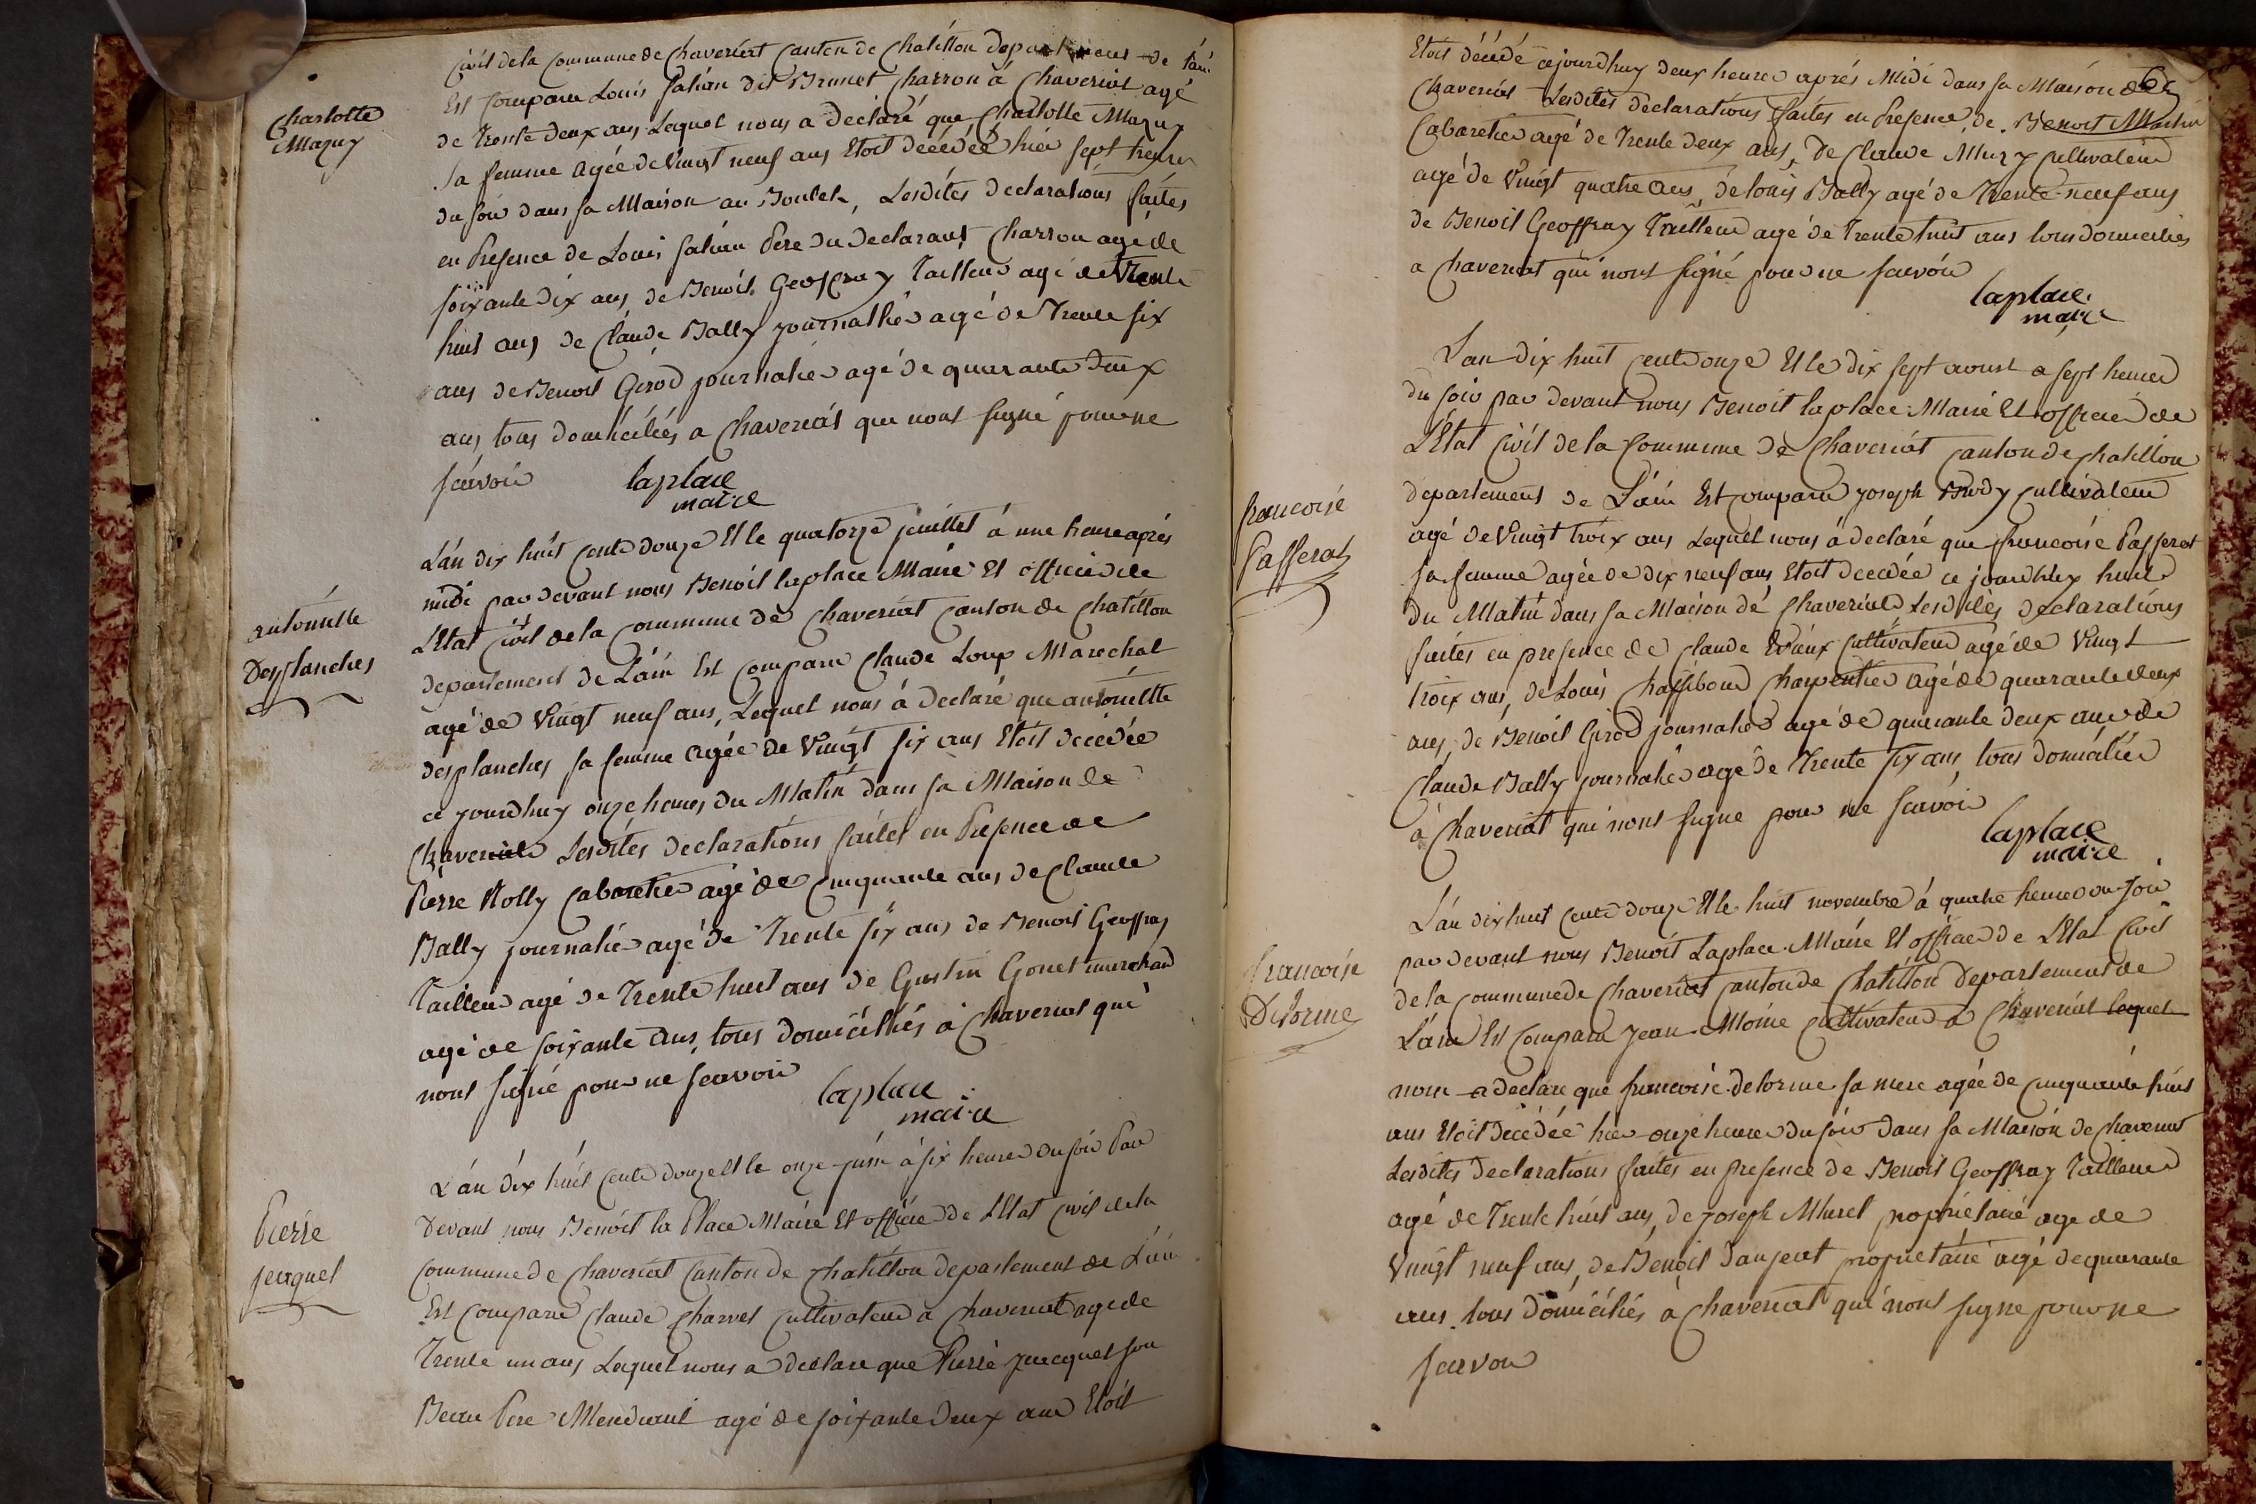 Charlotte
Mazuy
Civil de la Commune de Chaveriat Canton de Chatillon departement de l'ain
Est Comparu Louis dit Brunet Charron à Chaveriat agé
de Trente deux ans Lequel nous a declaré que Charlotte Mazuy
sa femme agée de Vingt neuf ans Etoit décédée hier sept heures
du soir dans sa Maison au Lesdites declarations faites
en Presence de Louis Pere du declarant Charron agé de
soixante dix ans, de Benoit Geoffray Tailleur agé de Trente
huit ans de Claude Bally journalier agé de Trente six
ans de Benoit Girod journalier agé de quarante deux
ans, tous domiciliés a Chaveriat qui nont signé pour ne
scavoir laplace
maire
antoinette
Desplanches
L'an dix huit cents douze Et le quatorze juillet à une heure après
midi par devant nous Benoit laplace Maire Et officier de
L'Etat Civil de la Commune de Chaveriat Canton de Chatillon
departement de L'ain Est Comparu Claude Loup Marechal
agé de Vingt neuf ans, Lequel nous à declaré que antoinette
desplanches sa femme agée de Vingt six ans Etoit décédée
ce jourdhuy onze heures du Matin dans sa Maison de
Chaveriat Lesdites declarations faites en Presence de
Pierre Cabaretier agé de Cinquante ans de Claude
Bally journalier agé de Trente six ans de Benoit Geoffray
Tailleur agé de Trente huit ans de Gonet marchand
agé de soixante ans, tous domiciliés à Chaveriat qui
nont signé pour ne scavoir laplace
maire
Pierre
jacquet
L'an dix huit cents douze Et le onze juin à six heures du soir Par
Devant nous Benoit la Place Maire Et officier de L'Etat Civil de la
Commune de Chaveriat Canton de Chatillon departement de L'ain
Est Comparu Claude Charvet Cultivateur à Chaveriat agé de
Trente un ans Lequel nous a declare que Pierre jacquet son
Beau Pere Mendiant agé de soixante deux ans Etoit
Etoit décédé cejourdhuy deux heures après Midi dans sa Maison de
Chaveriat Lesdites declarations faites en Presence de Benoit Martin
Cabaretier agé de Trente deux ans, De Claude Cultivateur
agé de Vingt quatre ans, de louis Bally agé de Trente neuf ans
de Benoit Geoffray Tailleur agé de Trente huit ans tous domiciliés
a Chaveriat qui nont signé pour ne scavoir
laplace
maire
francoise
Passerat
L'an dix huit cents onze Et le dix sept aoust a sept heures
du soir par devant nous Benoit laplace Maire Et officier de
L'Etat Civil de la Commune de Chaveriat Canton de Chatillon
departement de L'ain Est Comparu joseph Cultivateur
agé de Vingt troix ans Lequel nous à declaré que francoise Passerat
sa femme agée de dix neuf ans Etoit décédée ce jourdhuy huit
du Matin dans sa Maison de Chaveriat Lesdites declarations
faites en presence de Claude Cultivateur agé de Vingt
troix ans, de Louis Charpentier agé de quarante deux
ans, de Benoit Girod journalier agé de quarante deux ans de
Claude Bally journalier agé de Trente six ans, tous domiciliés
à Chaveriat qui nont signe pour ne scavoir
laplace
maire
francoise
Delorme
L'an dix huit cents douze Et le huit novembre à quatre heures du soir
par devant nous Benoit Laplace Maire Et officier de L'Etat Civil
de la Commune de Chaveriat Canton de Chatillon Departement de
L'ain Est Comparu jean Moine Cultivateur a Chaveriat lequel
nous a declare que francoise delorme sa mere agée de Cinquante huit
ans Etoit décédée hier onze heures du soir dans sa Maison de Chaveriat
Lesdites declarations faites en presence de Benoit Geoffray Tailleur
agé de Trente huit ans, de joseph Muret propriétaire age de
Vingt neuf ans, de Benoit propriétaire agé de quarante
ans tous domiciliés à Chaveriat qui nont signe pour ne
scavoir